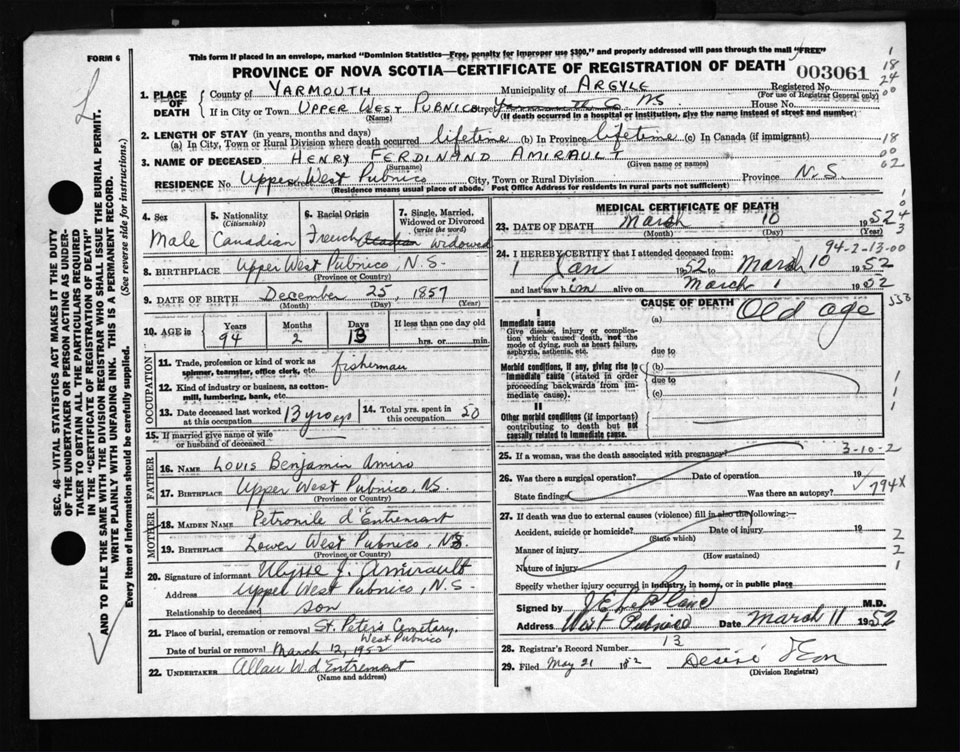 FORM 6
This form if placed in an envelope, marked "Dominion Statistics—Free, penalty for improper use $300," and properly addressed will pass through the mail "FREE"
PROVINCE OF NOVA SCOTIA—CERTIFICATE OF REGISTRATION OF DEATH
003061
1. PLACE OF DEATH County of YARMOUTH Municipality of ARGYLE Registered No.
(For use of Registrar General only)
If in City or Town UPPER WEST PUBNICO Street N.S. House No.
(Name) (If death occurred in a hospital or institution, give the name instead of street and number)
2. LENGTH OF STAY (in years, months and days)
(a) In City, Town or Rural Division where death occurred lifetime (b) In Province lifetime (c) In Canada (if immigrant)
3. NAME OF DECEASED HENRY FERDINAND AMIRAULT
(Surname) (Given name or names)
RESIDENCE No. Upper West Pubnico Street City, Town or Rural Division Province N.S.
(Residence means usual place of abode. Post Office Address for residents in rural parts not sufficient)
4. Sex Male
5. Nationality (Citizenship) Canadian
6. Racial Origin French Acadian
7. Single, Married, Widowed or Divorced (write the word) widowed
8. BIRTHPLACE Upper West Pubnico, N.S.
(Province or Country)
9. DATE OF BIRTH December 25, 1857
(Month) (Day) (Year)
10. AGE is Years 94 Months 2 Days 13 If less than one day old hrs. or min.
OCCUPATION
11. Trade, profession or kind of work as spinner, teamster, office clerk, etc. fisherman
12. Kind of industry or business, as cotton-mill, lumbering, bank, etc.
13. Date deceased last worked at this occupation 13 yrs ago
14. Total yrs. spent in this occupation 50
15. If married give name of wife or husband of deceased
FATHER
16. NAME Louis Benjamin Amiro
17. BIRTHPLACE Upper West Pubnico, N.S.
(Province or Country)
MOTHER
18. MAIDEN NAME Petronile d'Entremont
19. BIRTHPLACE Lower West Pubnico, N.S.
(Province or Country)
20. Signature of informant Ulysse J. Amirault
Address Upper West Pubnico, N.S.
Relationship to deceased son
21. Place of burial, cremation or removal St. Peters Cemetary, West Pubnico
Date of burial or removal March 12, 1952
22. UNDERTAKER Allan W. d'Entremont
(Name and address)
MEDICAL CERTIFICATE OF DEATH
23. DATE OF DEATH March 10 1952
(Month) (Day)
94-2-13-00
24. I HEREBY CERTIFY that I attended deceased from:
1 Jan 1952 to March 10 1952
and last saw him alive on March 1 1952
CAUSE OF DEATH
I
Immediate cause
Give disease, injury or complication which caused death, not the mode of dying, such as heart failure, asphyxia, asthenia, etc.
(a) Old age
due to
Morbid conditions, if any, giving rise to immediate cause (stated in order proceeding backwards from immediate cause).
(b)
due to
(c)
II
Other morbid conditions (if important) contributing to death but not causally related to immediate cause.
25. If a woman, was the death associated with pregnancy?
3-10-2
26. Was there a surgical operation? Date of operation 19
State findings Was there an autopsy?
794X
27. If death was due to external causes (violence) fill in also the following:—
Accident, suicide or homicide? Date of injury 19
(State which)
Manner of injury
(How sustained)
Nature of injury
Specify whether injury occurred in industry, in home, or in public place
Signed by M.D.
Address West Pubnico Date March 11 1952
28. Registrar's Record Number 13
29. Filed May 21 1952 Desiré d'Eon
(Division Registrar)
SEC. 46—VITAL STATISTICS ACT MAKES IT THE DUTY
OF THE UNDERTAKER OR PERSON ACTING AS UNDER-
TAKER TO OBTAIN ALL THE PARTICULARS REQUIRED
IN THE "CERTIFICATE OF REGISTRATION OF DEATH"
AND TO FILE THE SAME WITH THE DIVISION REGISTRAR WHO SHALL ISSUE THE BURIAL PERMIT.
WRITE PLAINLY WITH UNFADING INK. THIS IS A PERMANENT RECORD.
Every item of information should be carefully supplied. (See reverse side for instructions.)